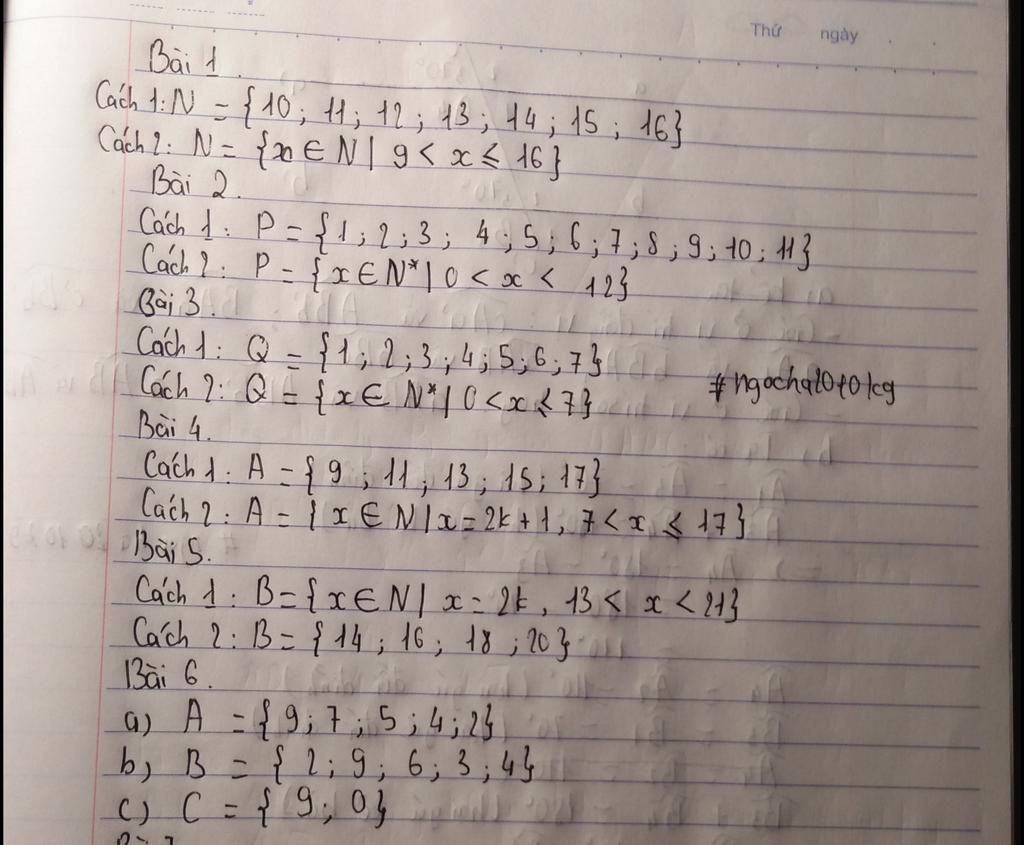 Thứ ngày
Bài 1
Cách 1: N = {10; 11; 12; 13; 14; 15; 16}
Cách 2: N = {x ∈ N | 9 < x ≤ 16}
Bài 2.
Cách 1: P = {1; 2; 3; 4; 5; 6; 7; 8; 9; 10; 11}
Cách 2: P = {x ∈ N* | 0 < x < 12}
Bài 3.
Cách 1: Q = {1; 2; 3; 4; 5; 6; 7}
Cách 2: Q = {x ∈ N* | 0 < x ≤ 7}
#ngocha2010kg
Bài 4.
Cách 1: A = {9; 11; 13; 15; 17}
Cách 2: A = {x ∈ N | x = 2k + 1, 7 < x ≤ 17}
Bài 5.
Cách 1: B = {x ∈ N | x = 2k, 13 < x < 21}
Cách 2: B = {14; 16; 18; 20}
Bài 6.
a) A = {9; 7; 5; 4; 2}
b) B = {2; 9; 6; 3; 4}
c) C = {9; 0}